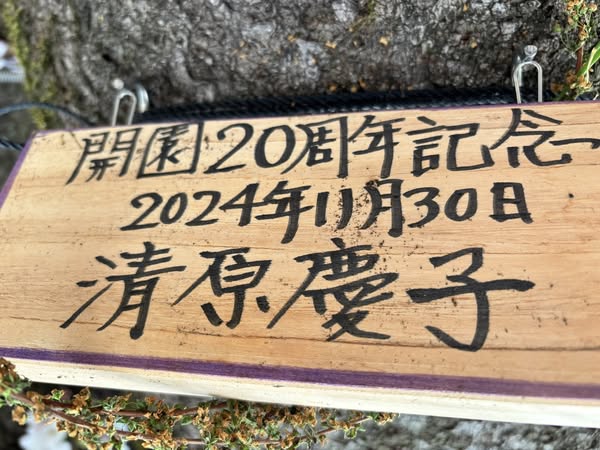 開園20周年記念
2024年11月30日
清原慶子